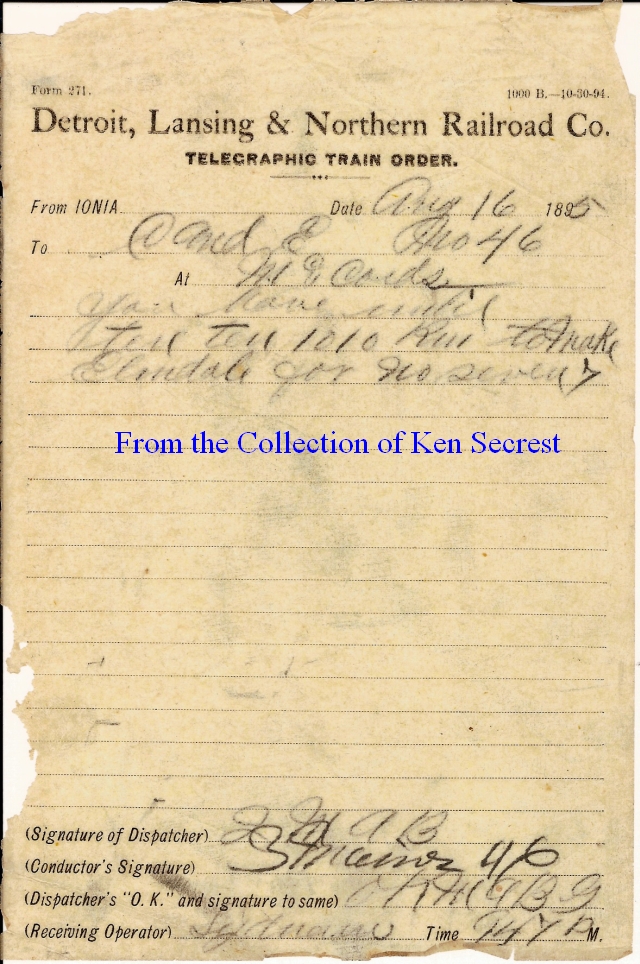 Form 271.
1000 B.—10-30-94.
Detroit, Lansing & Northern Railroad Co.
TELEGRAPHIC TRAIN ORDER.
From IONIA Date Aug 16 1895
To C and E No 46
At McCords
you have until
ten ten 1010 to make
Elmdale for No seven 7
From the Collection of Ken Secrest
(Signature of Dispatcher)
(Conductor's Signature) 46
(Dispatcher's "O. K." and signature to same) OK
(Receiving Operator) Time 947 P M.